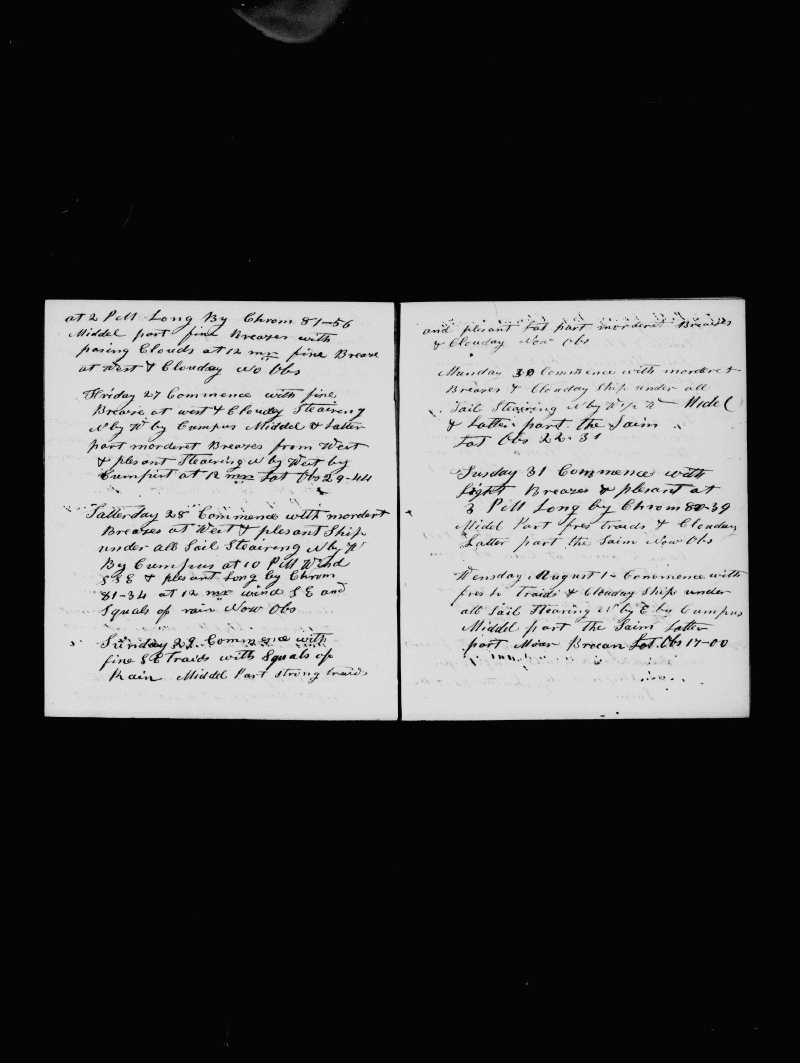 at 2 PM Long By Chrom 81-56
Middel part fine Breazes with
pasing Clouds at 12 mn fine Breaze
at west & Clouday No Obs
Friday 27 Commence with fine
Breaze at west & Cloudey Steairing
N by W by Cumpus Middel & Latter
part morderet Breazes from West
& plesant Steairing N by West by
Cumpust at 12 mn Lat Obs 29-44
Satterday 28 Commence with morderet
Breazes at West & plesant Ship
under all Sail Steairing N by W
By Cumpus at 10 PM Wind
SSE & plesant Long by Chrom
81-34 at 12 mn wind SE and
Squals of rain Now Obs
Sunday 29 Commence with
fine SE Traids with Squals of
Rain Middel Part strong traids
and plesant Lat part morderet Breazes
& Clouday Now Obs
Munday 30 Commence with morderet
Breazes & Clouday Ship under all
Sail Steairing N by W 1/2 W Midel
& Latter part the Saim
Lat Obs 22-31
Tusday 31 Commence with
Light Breazes & plesant at
3 PM Long by Chrom 80-39
Midel Part fres traids & Clouday
Latter part the Saim Now Obs
Wensday August 1 Commence with
fresh Traids & Clouday Ship under
all Sail Stearing N by E by Cumpus
Middel part the Saim Latter
part Moar Lat Obs 17-00